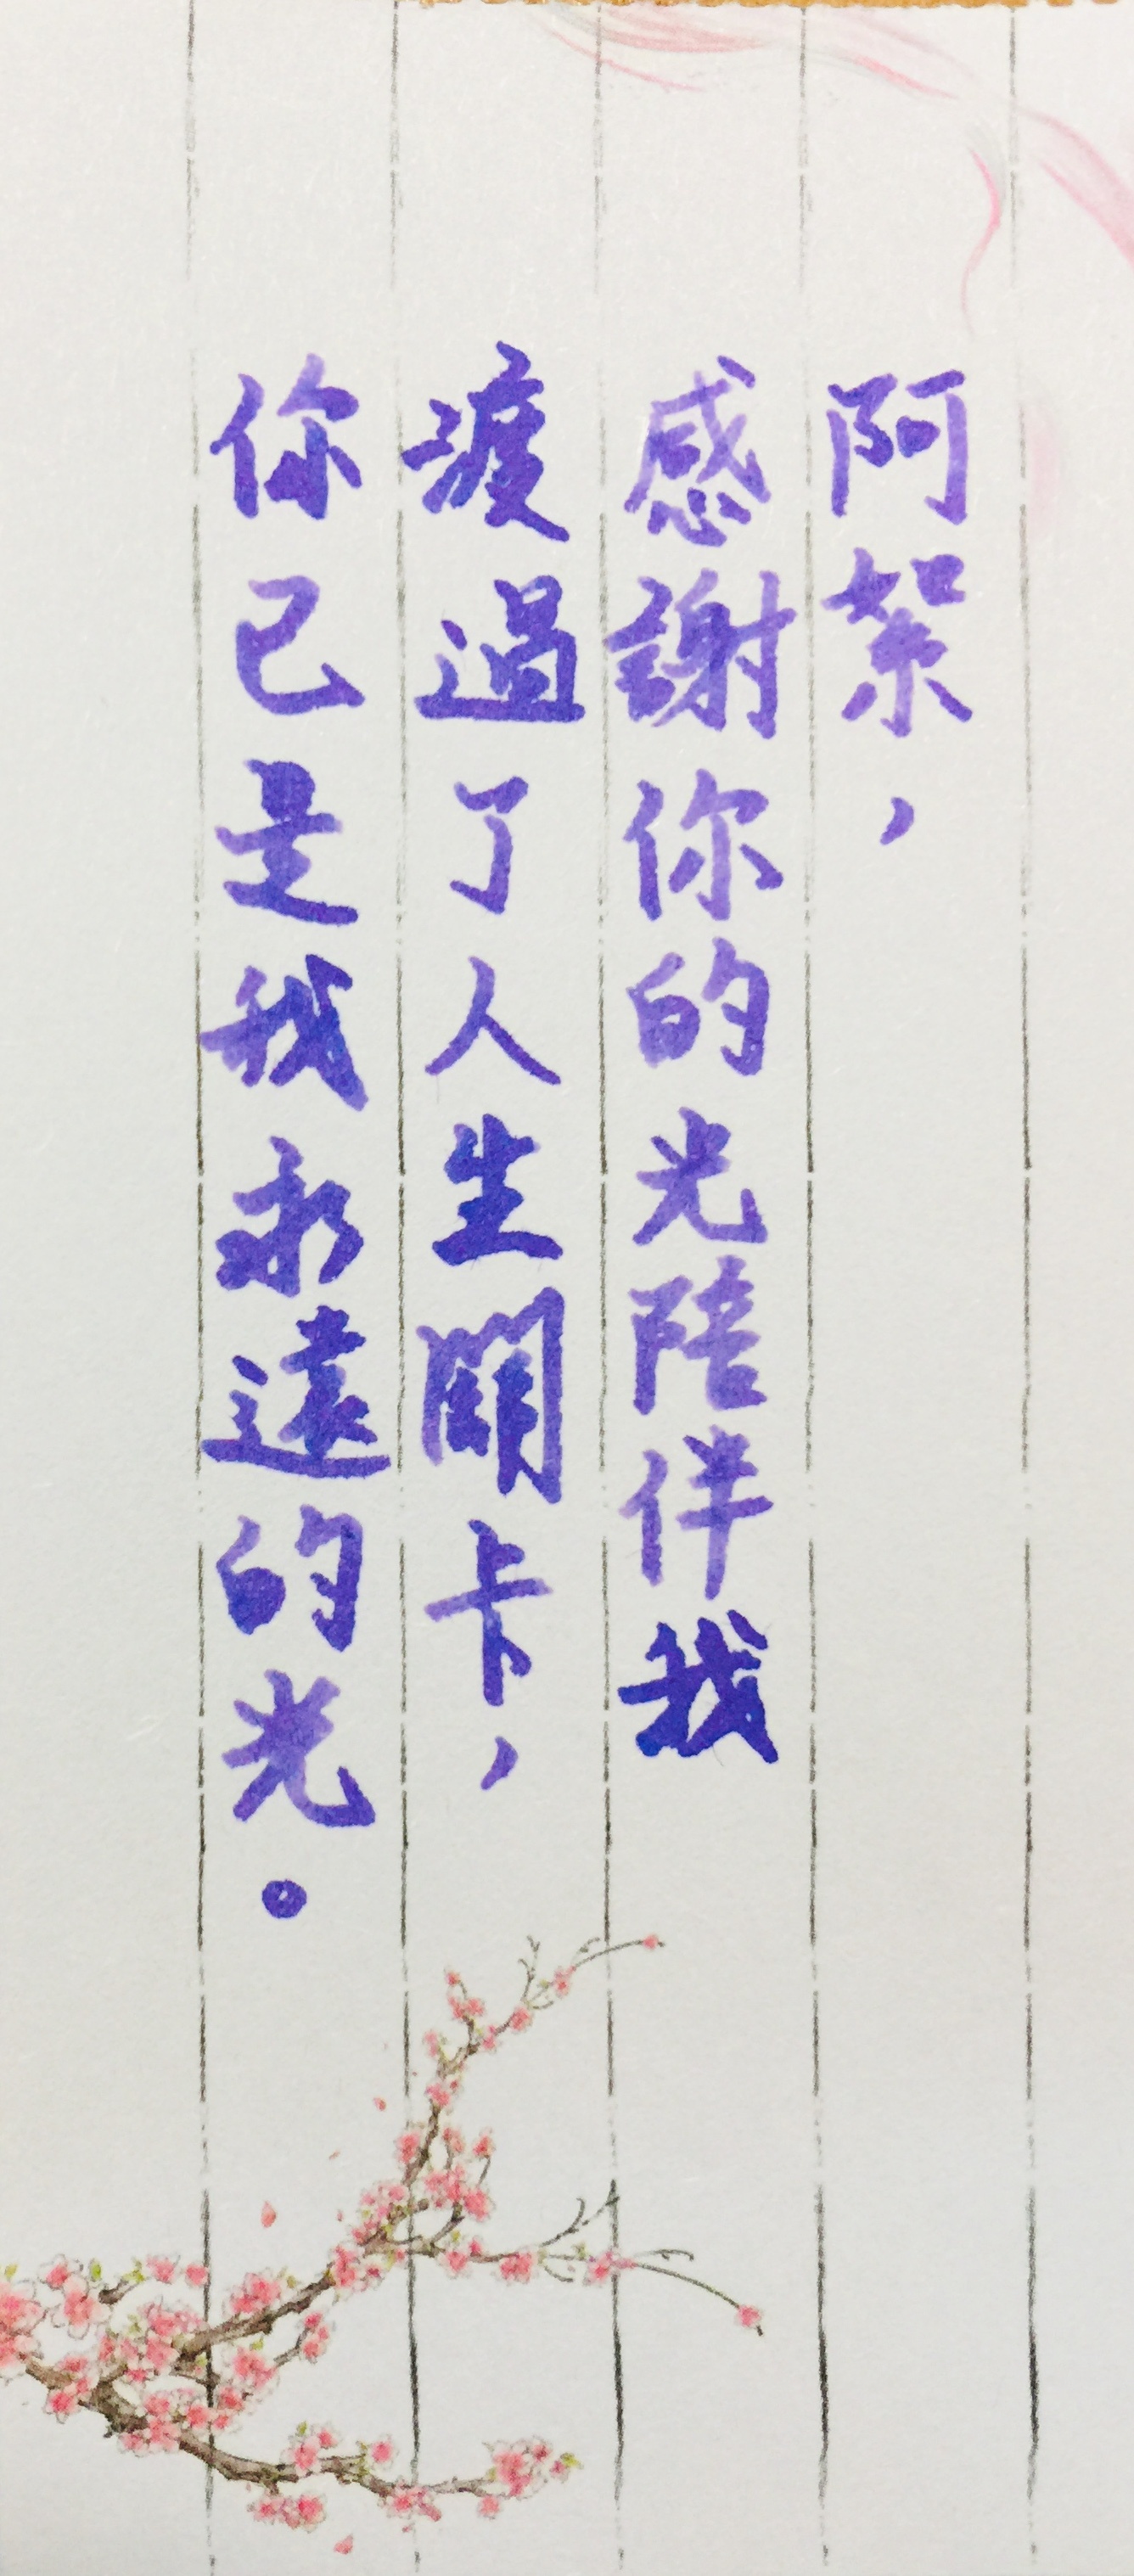 阿絮，
感謝你的光陪伴我
渡過了人生關卡，
你已是我永遠的光。